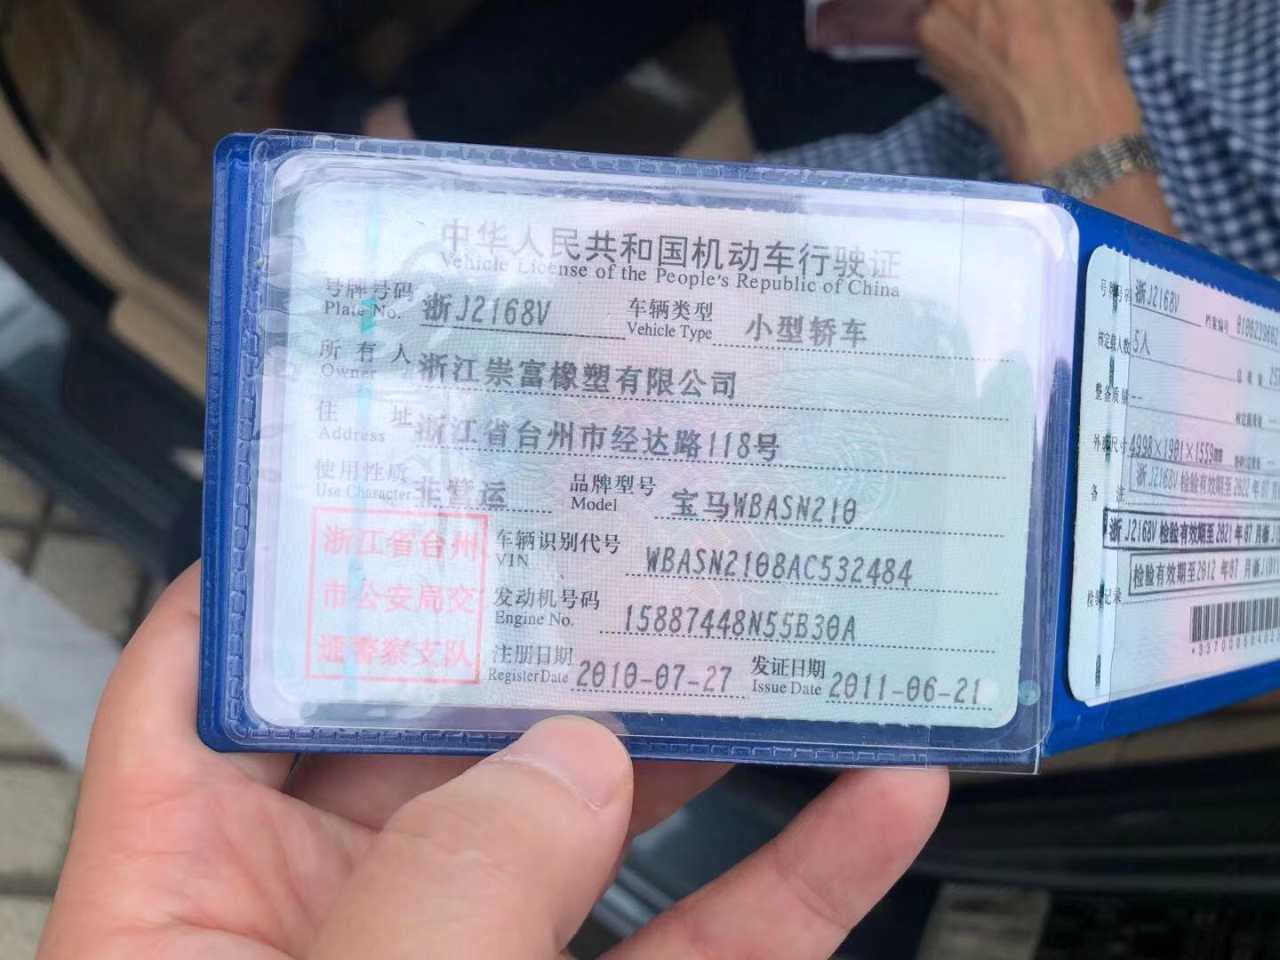 中华人民共和国机动车行驶证
Vehicle License of the People's Republic of China
号牌号码 浙J2168V 车辆类型 小型轿车
Plate No. Vehicle Type
所有人 浙江崇富橡塑有限公司
Owner
住址 浙江省台州市经达路118号
Address
使用性质 非营运 品牌型号 宝马WBASN210
Use Character Model
浙江省台州
市公安局交
通警察支队
车辆识别代号 WBASN2108AC532484
VIN
发动机号码 15887448N55B30A
Engine No.
注册日期 2010-07-27 发证日期 2011-06-21
Register Date Issue Date
号牌号码 浙J2168V 档案编号
核定载人数 5人
整备质量 --
外廓尺寸 4998×1901×1559mm
备注 浙J2168V 检验有效期至2022年07月
浙J2168V 检验有效期至2021年07月
检验有效期至2012年07月
检验记录